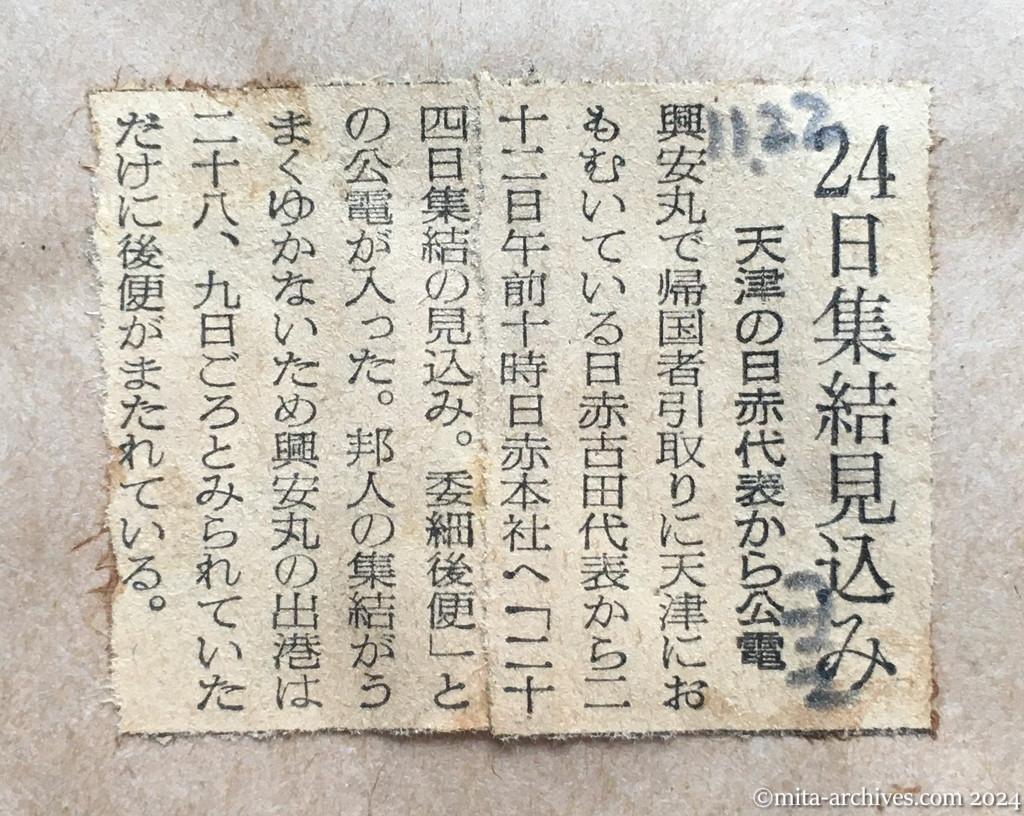 24日集結見込み
天津の日赤代表から公電
興安丸で帰国者引取りに天津にお
もむいている日赤古田代表から二
十二日午前十時日赤本社へ「二十
四日集結の見込み。委細後便」と
の公電が入った。邦人の集結がう
まくゆかないため興安丸の出港は
二十八、九日ごろとみられていた
だけに後便がまたれている。
11.22
©mita-archives.com 2024